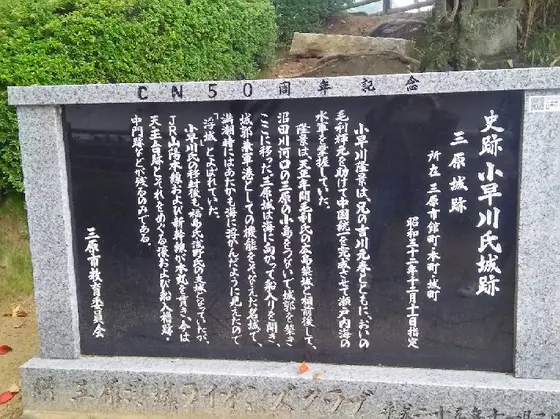 CN50周年記念
史跡 小早川氏城跡
三原城跡
所在 三原市館町・本町・城町
昭和三十二年十二月十日指定
小早川隆景は、兄の吉川元春とともに、おいの
毛利輝元を助けて中国統一を完成させ、瀬戸内海の
水軍を掌握していた。
隆景は天正年間毛利氏の広島築城と相前後して、
沼田川河口の三原の小島をつないで城郭を築き
ここに移った。三原城は海に向かって船入りを開き、
城郭兼軍港としての機能をそなえた名城で、
満潮時にはあたかも海に浮かんだように見えたので
「浮城」とよばれていた。
小早川氏の移封後も福島氏、浅野氏の支城となっていたが、
JR山陽本線および新幹線が本丸を貫き、今は
天主台跡とそれをめぐる濠および船入櫓跡・
中門跡などが残るのみである。
三原市教育委員会
ライオンズクラブ